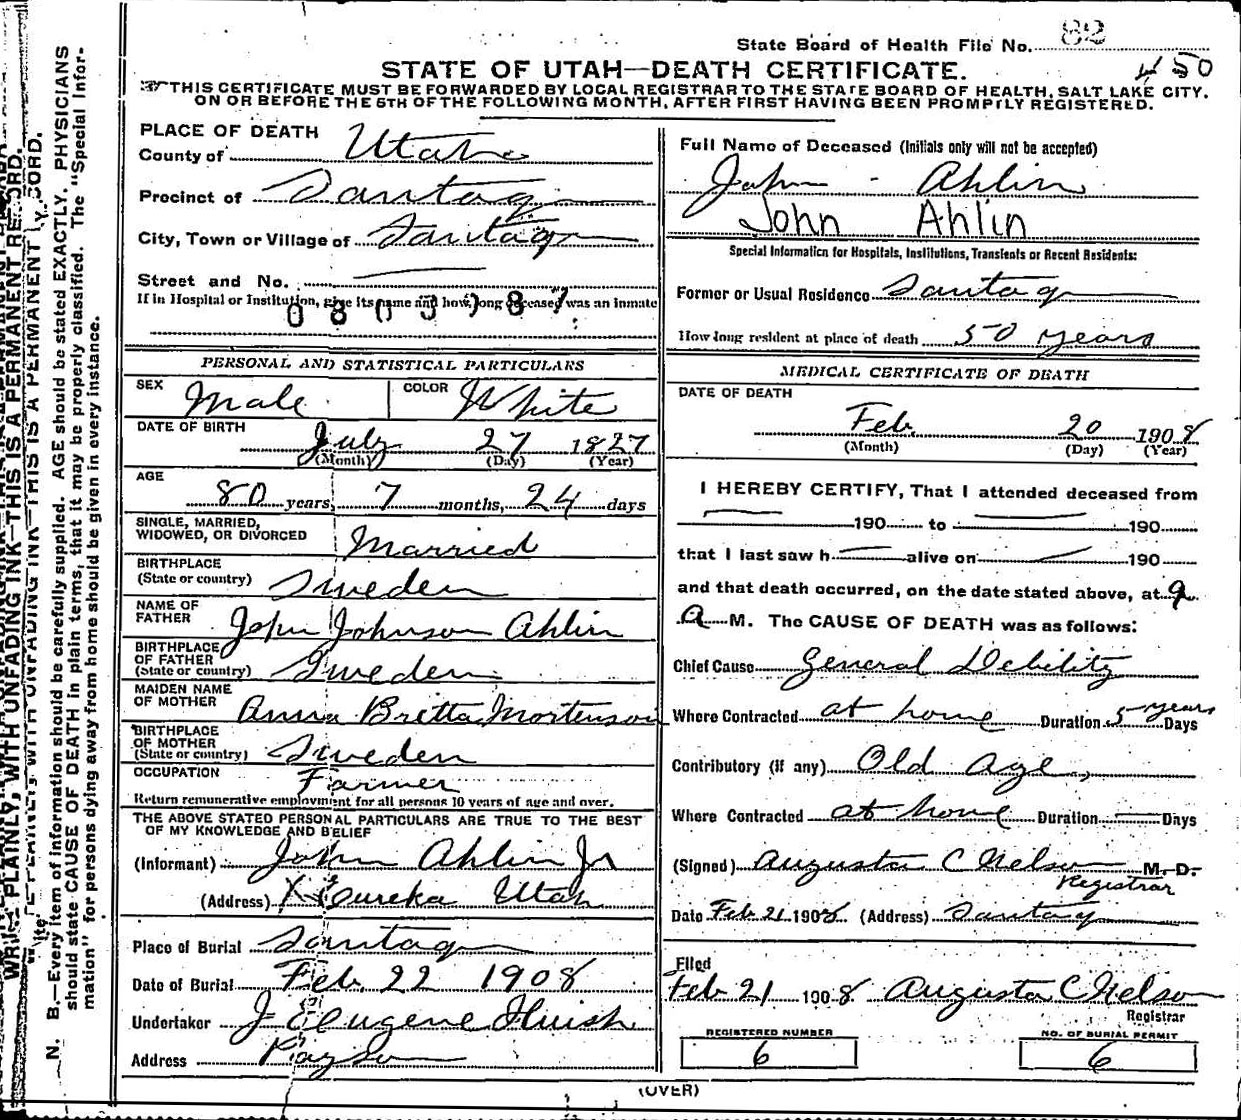 State Board of Health File No. 82
450
STATE OF UTAH—DEATH CERTIFICATE.
THIS CERTIFICATE MUST BE FORWARDED BY LOCAL REGISTRAR TO THE STATE BOARD OF HEALTH, SALT LAKE CITY,
ON OR BEFORE THE 5TH OF THE FOLLOWING MONTH, AFTER FIRST HAVING BEEN PROMPTLY REGISTERED.
PLACE OF DEATH
County of Utah
Precinct of Santaq
City, Town or Village of Santaq
Street and No.
If in Hospital or Institution, give its name and how long deceased was an inmate
0803787
PERSONAL AND STATISTICAL PARTICULARS
SEX Male COLOR White
DATE OF BIRTH
July 27 1827
(Month) (Day) (Year)
AGE
80 years, 7 months, 24 days
SINGLE, MARRIED,
WIDOWED, OR DIVORCED Married
BIRTHPLACE
(State or country) Sweden
NAME OF
FATHER John Johnson Ahlin
BIRTHPLACE
OF FATHER
(State or country) Sweden
MAIDEN NAME
OF MOTHER Anna Britta Mortenson
BIRTHPLACE
OF MOTHER
(State or country) Sweden
OCCUPATION Farmer
Return remunerative employment for all persons 10 years of age and over.
THE ABOVE STATED PERSONAL PARTICULARS ARE TRUE TO THE BEST
OF MY KNOWLEDGE AND BELIEF
(Informant) John Ahlin Jr
(Address) Eureka Utah
Place of Burial Santaq
Date of Burial Feb. 22 1908
Undertaker J Eugene Huish
Address Payson
Full Name of Deceased (Initials only will not be accepted)
John Ahlin
John Ahlin
Special Information for Hospitals, Institutions, Transients or Recent Residents:
Former or Usual Residence Santaq
How long resident at place of death 50 years
MEDICAL CERTIFICATE OF DEATH
DATE OF DEATH
Feb. 20 1908
(Month) (Day) (Year)
I HEREBY CERTIFY, That I attended deceased from
190 to 190
that I last saw h alive on 190
and that death occurred, on the date stated above, at 9
a M. The CAUSE OF DEATH was as follows:
Chief Cause General Debility
Where Contracted at home Duration 5 years Days
Contributory (if any) Old age,
Where Contracted at home Duration Days
(Signed) Augusta C Nelson M. D.
Registrar
Date Feb 21 1908 (Address) Santaq
Filed
Feb 21 1908 Augusta C Nelson
Registrar
REGISTERED NUMBER NO. OF BURIAL PERMIT
6 6
(OVER)
WRITE PLAINLY, WITH UNFADING INK—THIS IS A PERMANENT RECORD.
N. B.—Every item of information should be carefully supplied. AGE should be stated EXACTLY. PHYSICIANS
should state CAUSE OF DEATH in plain terms, that it may be properly classified. The "Special Infor-
mation" for persons dying away from home should be given in every instance.